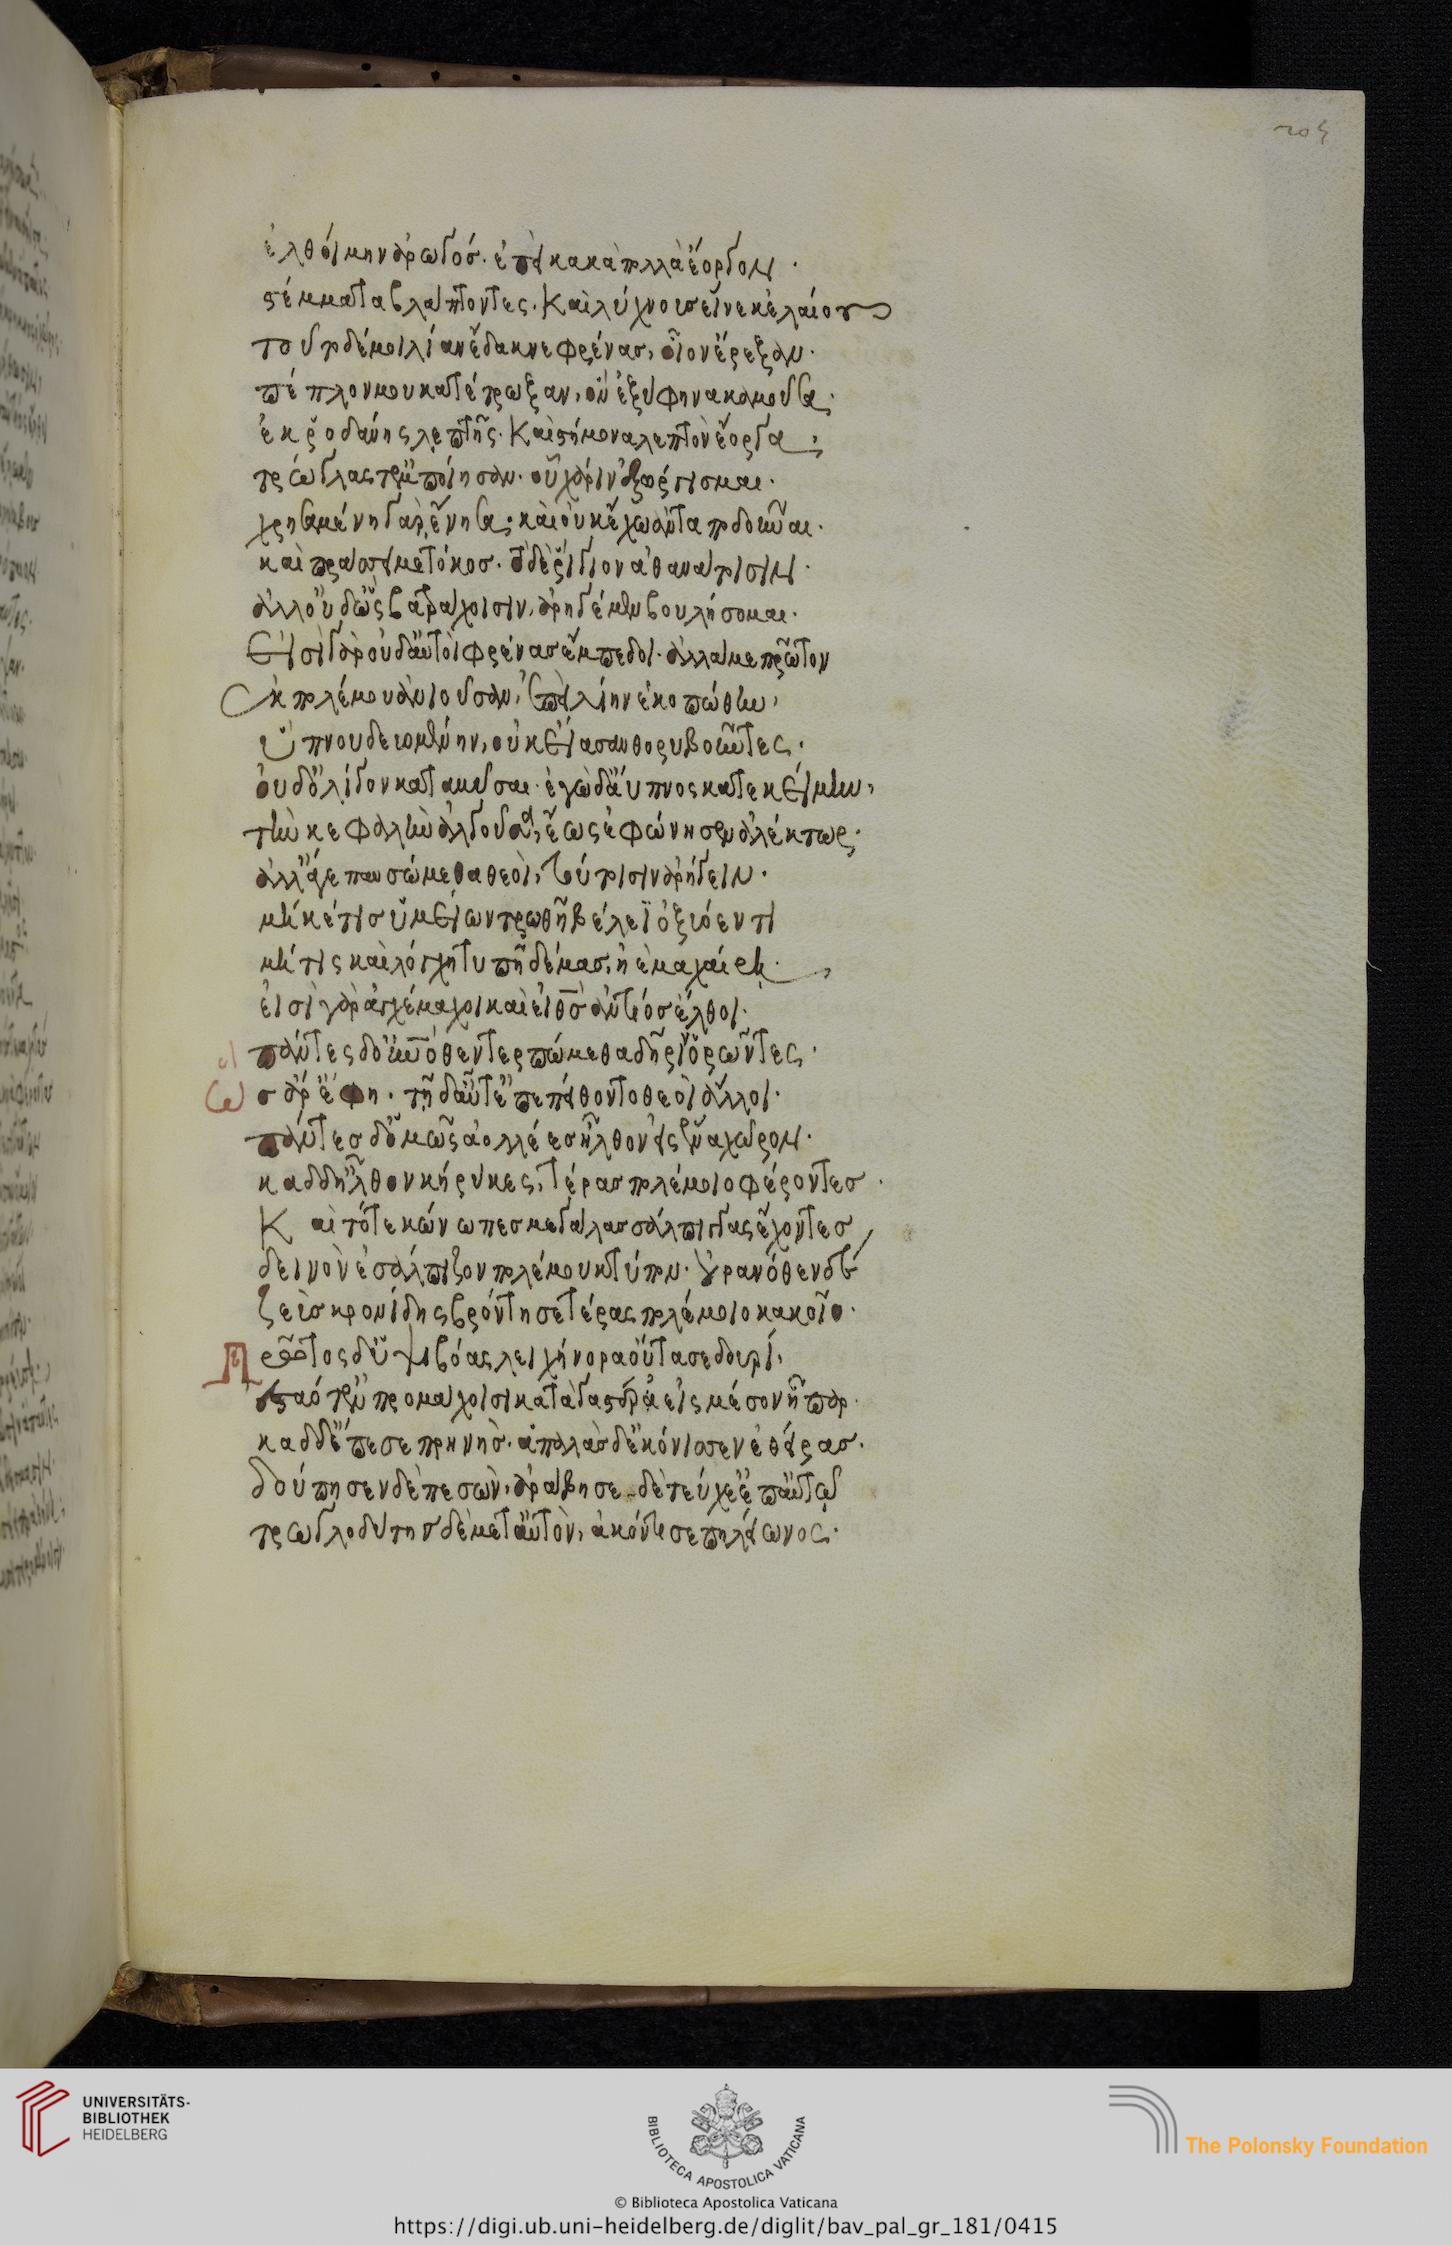 ἐλθοίμην ἀρωγός. ἐπεὶ κακὰ πολλὰ ἔοργον·
στέμματα βλάπτοντες. Καὶ λύχνοις εἵνεκ ἐλαίου
τοῦτο δέ μοι λίαν ἔδακνε φρένας, οἷον ἔρεξαν·
πέπλον μου κατέτρωξαν, ὃν ἐξύφηνα καμοῦσα·
ἐκ ῥοδάνης λεπτῆς. Καὶ στήμονα λεπτὸν ἔοργα,
τρώγλας τ' ἐμποίησαν. οὗ χάριν ἐξώργισμαι·
χρησαμένη γὰρ ἔνησα· καὶ οὐκ ἔχω αὖτ ἀποδοῦναι·
καὶ πράσσει με τόκος. τὸ δὲ ῥίγιον ἀθανάτοισιν·
ἀλλ' οὐδ' ὣς βατράχοισιν, ἀρηγέμεν βουλήσομαι·
Εἰσὶ γὰρ οὐδ' αὐτοὶ φρένας ἔμπεδοι. ἀλλά με πρῶτον
ἐκ πολέμου ἀνιοῦσαν, ἐπεὶ λίην ἐκοπώθην,
ὕπνου δευομένην, οὐκ εἴασαν θορυβοῦντες·
οὐδ' ὀλίγον καταμῦσαι. ἐγὼ δ' ἄϋπνος κατεκείμην,
τὴν κεφαλὴν ἀλγοῦσα, ἕως ἐφώνησεν ἀλέκτωρ·
ἀλλ' ἄγε παυσώμεθα θεοὶ, τούτοισιν ἀρήγειν·
μή κέ τις ὑμείων τρωθῇ βέλεϊ ὀξυόεντι
μή τις καὶ λόγχῃ τυπῇ δέμας, ἠὲ μαχαίρῃ·
εἰσὶ γὰρ ἀγχέμαχοι καὶ εἰ θεὸς ἀντίος ἔλθοι·
πάντες δ' οὐρανόθεν τερπώμεθα δῆριν ὁρῶντες·
ὣς ἄρ' ἔφη. τῇ δ' αὖτ' ἐπεπείθοντο θεοὶ ἄλλοι·
πάντες δ' ὁμῶς ἀολλέες ἦλθον εἰς ἕνα χῶρον·
καδδ' ἦλθον κήρυκες, τέρας πολέμοιο φέροντες·
Καὶ τότε κώνωπες μεγάλας σάλπιγγας ἔχοντες
δεινὸν ἐσάλπιζον πολέμου κτύπον. οὐρανόθεν δὲ
ζεὺς κρονίδης βρόντησε τέρας πολέμοιο κακοῖο·
Πρῶτος δ' ὑψιβόας λειχήνορα οὔτασε δουρί,
ἑσταότ' ἐν προμάχοισι κατὰ γαστέρα εἰς μέσον ἧπαρ·
καδδ' ἔπεσε πρηνὴς. ἁπαλὰς δ' ἐκόνισσεν ἐθείρας·
δούπησεν δὲ πεσὼν, ἀράβησε δὲ τεύχε' ἐπ' αὐτῷ
τρωγλοδύτης δὲ μετ' αὐτὸν, ἀκόντισε πηλείωνος·
UNIVERSITÄTS-
BIBLIOTHEK
HEIDELBERG
BIBLIOTECA APOSTOLICA VATICANA
© Biblioteca Apostolica Vaticana
The Polonsky Foundation
https://digi.ub.uni-heidelberg.de/diglit/bav_pal_gr_181/0415